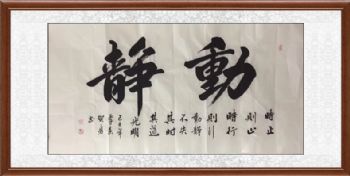 動靜
時止
則止
時行
則行
動靜
不失
其時
其道
光明